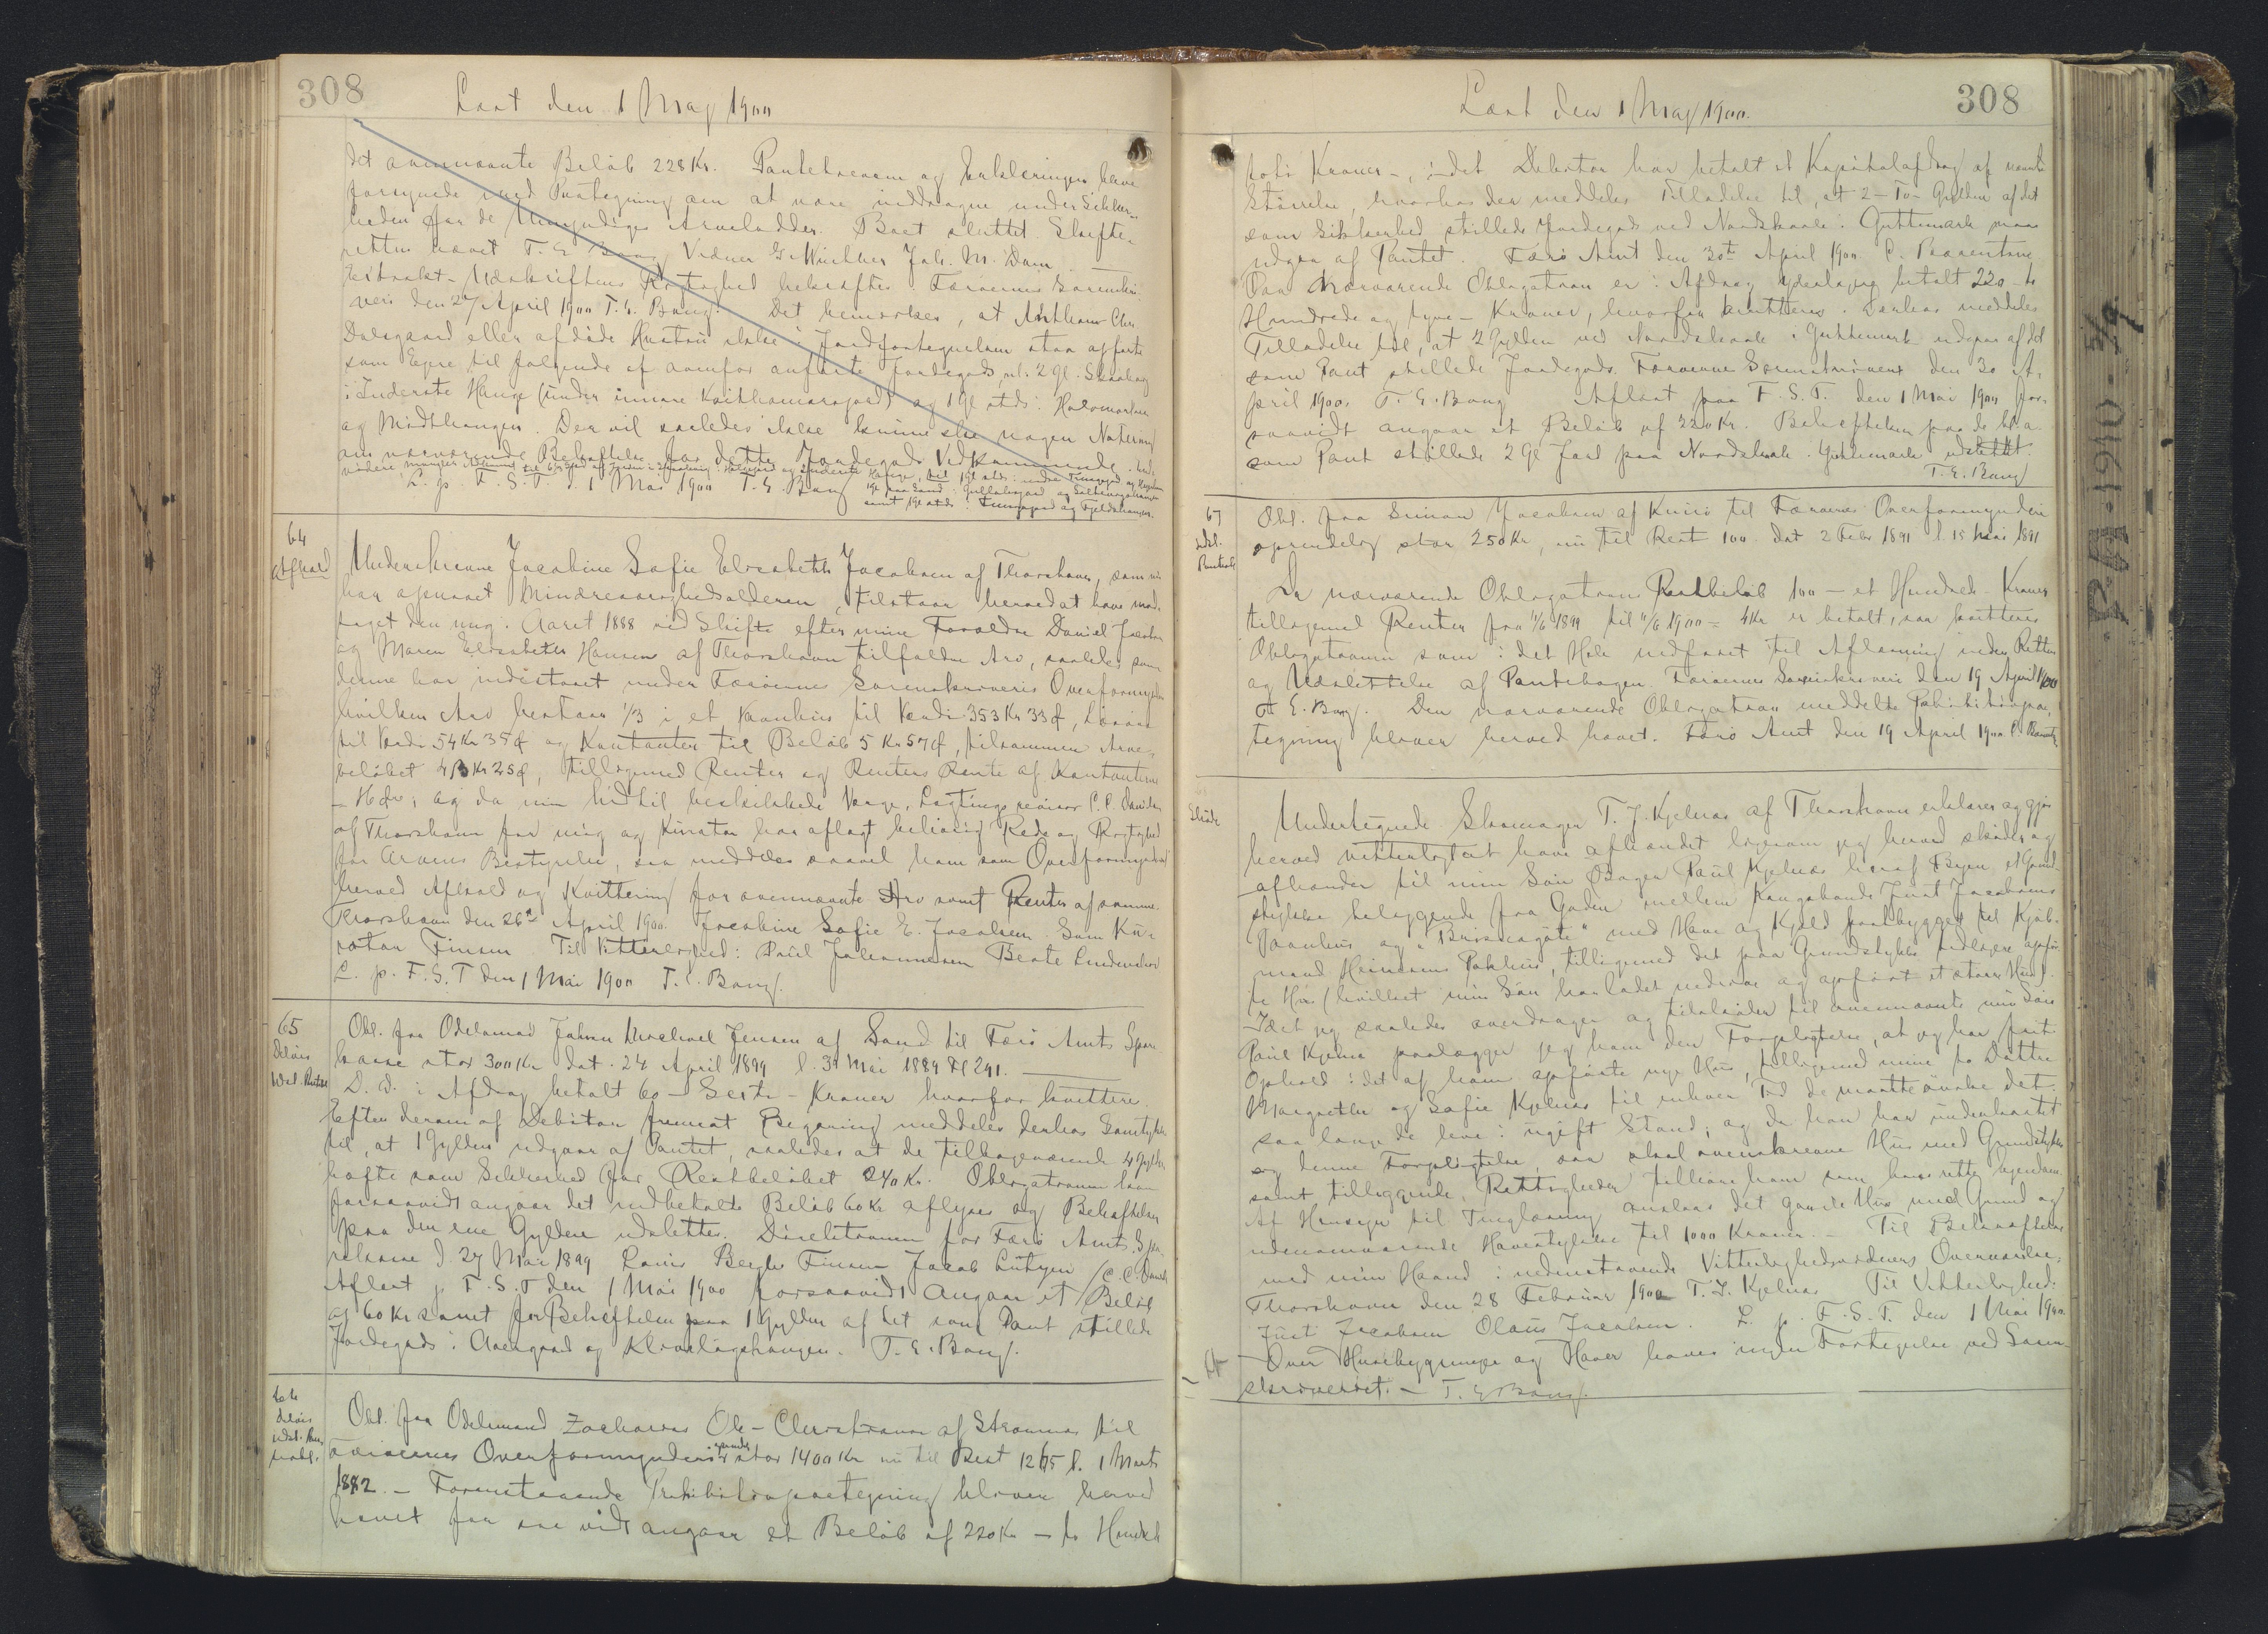 308
Læst den 1 Maj 1900
det ovennævnte Beløb 228 Kr. Pantehaverne og Erklæringen bleve
forsynede med Paategning om at være inddragne under Sikker-
heden for de Umyndiges Arvelodder. Boet sluttet. Skifte-
retten hævet T. E. Bang Vidner G. Müller Joh. M. Dam
Extrakt-Udskriftens Rigtighed bekræftes. Færøernes Sorenskri-
veri den 27 April 1900 T. E. Bang. Det bemærkes, at
Dalsgaard eller afdøde Hustru ikke i Jordfortegnelsen staa opførte
som Ejere til følgende af ovenfor anførte Jordegods, nl: 2 Gl.
i Inderste Hauge (under innare og 1 Gl. stds:
og Midthaugen. Der vil saaledes ikke kunne ske nogen Notering
om nærværende Behæftelse for dette Jordegods Vedkommende.
L. p. F. S. T. d. 1 Mai 1900 T. E. Bang
64
Afkald
Underskrevne Jacobine Sofie Elisabeth Jacobsen af Thorshavn, som nu
har opnaaet Mindreaarighedsalderen, tilstaar herved at have mod-
taget den mig i Aaret 1888 ved Skifte efter mine Forældre Daniel Jacobsen
og Maren Elisabeth Hansen af Thorshavn tilfaldne Arv, saaledes som
denne har indestaaet under Færøernes Sorenskriveris Overformynderi
hvilken Arv bestaar 1/3 i et Vaanhus til Værdi 353 Kr 33 Ø, Løsøre
til Værdi 54 Kr 35 Ø og Kontanter til Beløb 5 Kr 57 Ø, tilsammen Arve-
beløbet 413 Kr 25 Ø, tilligemed Renter og Renters Rente af Kontanterne
og da min hidtil beskikkede Værge, Lagtingsrevisor C. C. Danielsen
af Thorshavn for mig og Kurator har aflagt behørig Rede og Rigtighed
for Arvens Bestyrelse, saa meddeles saavel ham som Overformynderiet
herved Afkald og Kvittering for ovennævnte Arv samt Renter af samme.
Thorshavn den 26de April 1900. Jacobine Sofie E. Jacobsen. Som Ku-
rator Finsen. Til Vitterlighed: Poul Johannesen Beate
L. p. F. S. T den 1 Mai 1900 T. E. Bang.
65
Delvis
Udsl. Panteh
Obl. fra Odelsmand Johan Michael Jensen af Sand til Færø Amts Spare
kasse stor 300 Kr dat. 24 April 1899 l. 31 Mai 1889 Fl 291.
D. D. i Afdrag betalt 60 - Sexti - Kroner hvorfor kvitteres.
Efter derom af Debitor fremsat Begæring meddeles derhos Samtykke
til, at 1 Gylden udgaar af Pantet, saaledes at de tilbageværende 4 Gylden
hæfte som Sikkerhed for Restbeløbet 240 Kr. Obligationen kan
forsaavidt angaar det nedbetalte Beløb 60 Kr aflyses og Behæftelsen
paa den ene Gylden udslettes. Direktionen for Færø Amts Spa-
rekasse d. 27 Mai 1899 Louis Bergh Finsen Jacob Lützen / C. C. Danielsen
Aflæst p. F. S. T den 1 Mai 1900 forsaavidt angaar et Beløb
af 60 Kr samt for Behæftelsen paa 1 Gylden af det som Pant stillede
Jordegods i Aaregaard og T. E. Bang.
delvis
udsl. Pan
Obl. fra Odelsmand Zacharias Ole-Christiansen af Strømnæs til
Færøernes Overformynderi oprindelig stor 1400 Kr nu til Rest 1265 l. 1 Marts
1882. - Foranstaaende Prohibitivpaategning bliver herved
hævet for saa vidt angaar et Beløb af 220 Kr - to Hundrede
308
Læst den 1 Maj 1900.
tyve Kroner -, idet Debitor har betalt et Kapitalafdrag af nævnte
Størrelse, hvorhos der meddeles Tilladelse til, at 2 - To - Gylden af det
som Sikkerhed stillede Jordegods ved Nordskaale i Guttemark maa
udgaa af Pantet. Færø Amt den 30te April 1900. C. Bærentsen
Paa nærværende Obligation er i Afdrag yderligere betalt 220 - to
Hundrede og tyve - Kroner, hvorfor kvitteres. Derhos meddeles
Tilladelse til, at 2 Gylden ved Nordskaale i Guttemark udgaar af det
som Pant stillede Jordegods. Færøernes Sorenskriveri den 30 A-
pril 1900. T. E. Bang Aflæst paa F. S. T. den 1 Mai 1900 for-
saavidt angaar et Beløb af 220 Kr. Behæftelsen paa de bl. a.
som Pant stillede 2 Gl Jord paa Nordskaale i Guttemark udslettet.
T. E. Bang
67
udsl.
Panteobl
Obl. fra Simon Jacobsen af Kunø til Færøernes Overformynderi
oprindelig stor 250 Kr, nu til Rest 100 dat 2 Febr 1891 l. 15 Mai 1891
Da nærværende Obligations Restbeløb 100 - et Hundrede - Kroner
tilligemed Renter fra 11/6 1899 til 11/6 1900 = 4 Kr er betalt, saa kvitteres
Obligationen som i det Hele indfriet til Aflæsning inden Retten
og Udslettelse af Pantebogen. Færøernes Sorenskriveri den 19 April 1900
T. E. Bang. Den nærværende Obligation meddelte Prohibitivpaa-
tegning bliver herved hævet. Færø Amt den 19 April 1900 C. Bærentsen
Skøde
Undertegnede Skomager T. J. Kjelnæs af Thorshavn erklærer og gjør
herved vitterligt at have afhændet ligesom jeg herved skøder og
afhænder til min Søn Bager Poul Kjelnæs her af Byen, et Grund-
stykke beliggende fra Gaden mellem Kongsbonde Just Jacobsens
Vaanhus og „Bringsnagøte" med Have og Kjæld fastbygget til Kjøb-
mand Heinesens Pakhus, tilligemed det paa Grundstykket tidligere opfør-
te Hus (hvilket min Søn har ladet nedrive og opført et større Hus).
Idet jeg saaledes overdrager og tilskøder til ovennævnte min Søn
Poul Kjelnæs paalægger jeg ham den Forpligtelse, at jeg har frit
Ophold i det af ham opførte nye Hus, tilligemed mine to Døttre
Margrethe og Sofie Kjelnæs til enhver Tid de maatte ønske det
saa længe de leve i ugift Stand; og da han har underkastet
sig denne Forpligtelse, saa skal ovenskrevne Hus med Grundstykke
samt tilliggende Rettigheder tilhøre ham som hans rette Ejendom.
Af Hensyn til Tinglæsning anslaas det gamle Hus med Grund og
udenomværende Havestykke til 1000 Kroner. - Til Bekræftelse
med min Haand i nedenstaaende Vitterlighedsvidners Overværelse,
Thorshavn den 28 Februar 1900 T. J. Kjelnæs Til Vitterlighed:
Just Jacobsen Olaus Jacobsen. L. p. F. S. T. den 1 Mai 1900
Over Husebygninger og Haver haves ingen Fortegnelse ved Soren-
skriveriet. - T. E. Bang.